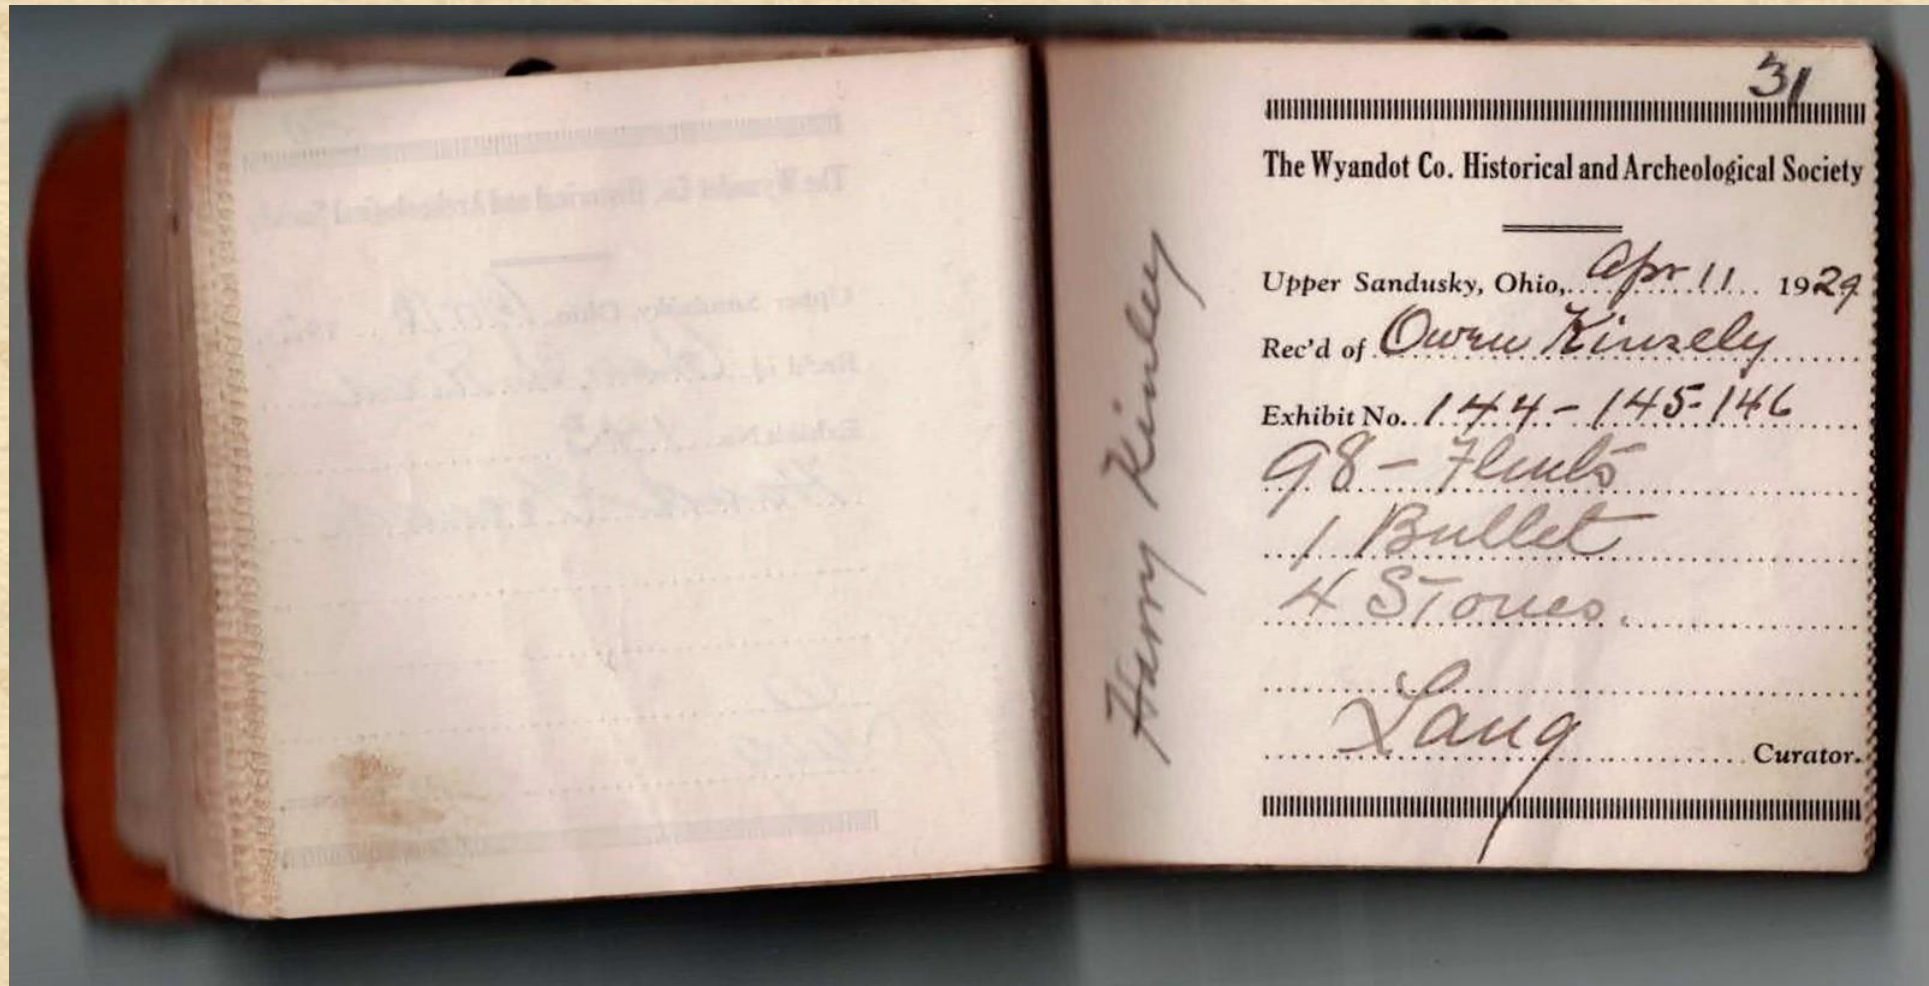 31
The Wyandot Co. Historical and Archeological Society
Upper Sandusky, Ohio, Apr 11 1929
Rec'd of Owen Kinzely
Exhibit No. 144-145-146
98 - Flints
1 Bullet
4 Stones.
Lang Curator.
Harry Kinley